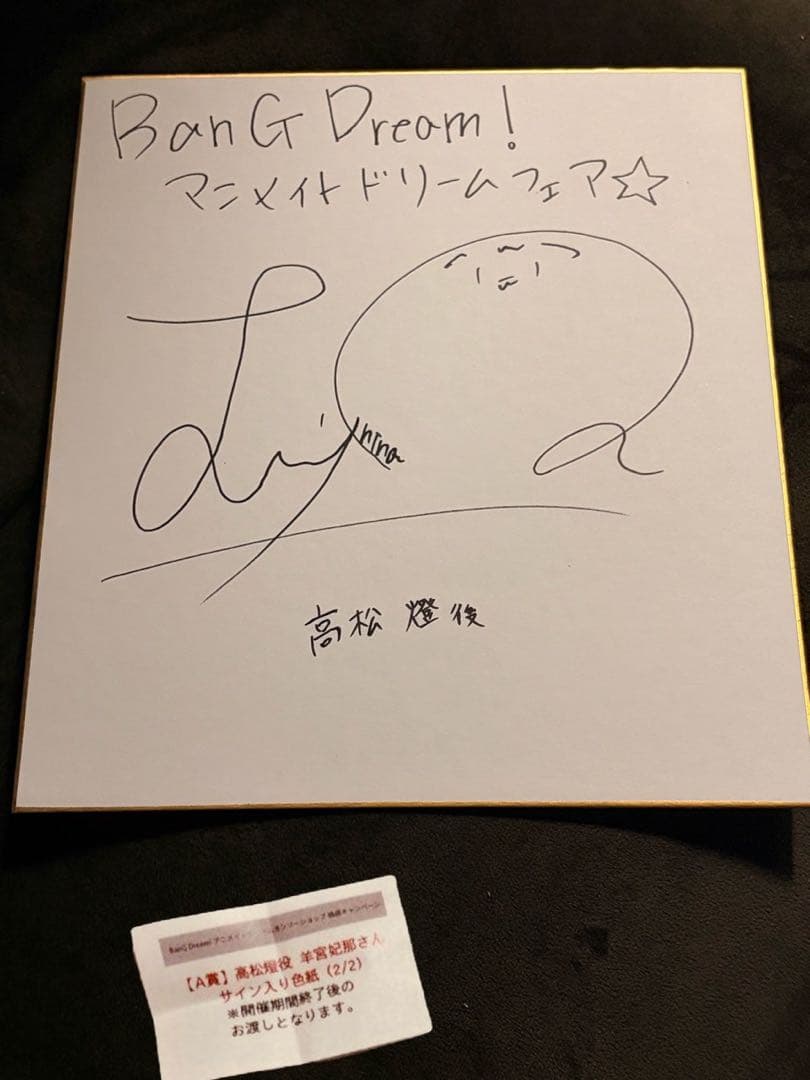 BanG Dream!
マニメイトドリームフェア☆
hina
高松 燈 後
BanG Dream! アニメイト
ンリーショップ 特典キャンペーン
【A賞】高松燈役 羊宮妃那さん
サイン入り色紙(2/2)
※開催期間終了後の
お渡しとなります。